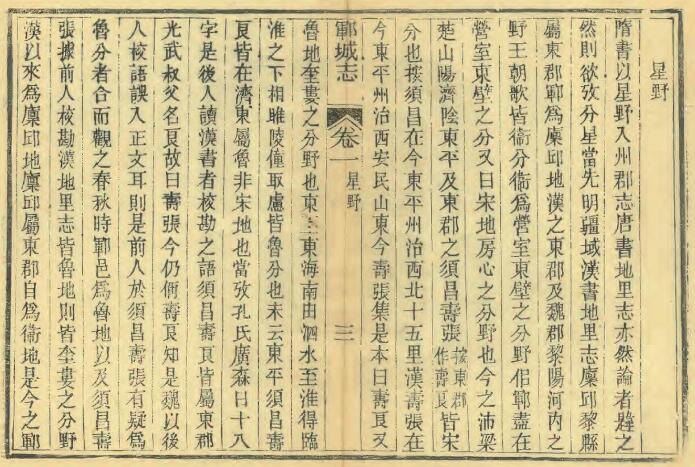 星野
隋書以星野入州郡志唐書地里志亦然論者韙之
然則欲攷分星當先明疆域漢書地里志廩邱黎縣
屬東郡鄆爲廩邱地漢之東郡及魏郡黎陽河内之
野王朝歌皆衞分衞爲營室東壁之分野偌鄆盡在
營室東壁之分又曰宋地房心之分野也今之沛梁
楚山陽濟陰東平及東郡之須昌壽張按東郡作壽良皆宋
分也按須昌在今東平州治西北十五里漢壽張在
今東平州治西安民山東今壽張集是本曰壽良又
鄆城志 卷一 星野 三
魯地奎婁之分野也東至東海南由泗水至淮得臨
淮之下相睢陵僮取慮皆魯分也末云東平須昌壽
良皆在濟東屬魯非宋地也當攷孔氏廣森曰十八
字是後人讀漢書者校勘之語須昌壽良皆屬東郡
光武叔父名良故曰壽張今仍偁壽良知是魏以後
人校語誤入正文耳則是前人於須昌壽張有疑爲
魯分者合而觀之春秋時鄆邑爲魯地以及須昌壽
張據前人校勘漢地里志皆魯地則皆奎婁之分野
漢以來爲廩邱地廩邱屬東郡自爲衞地是今之鄆